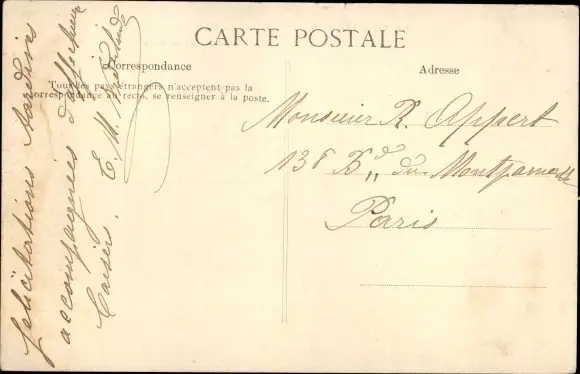 CARTE POSTALE
Correspondance
Tous les pays étrangers n'acceptent pas la
correspondance au recto, se renseigner à la poste.
Adresse
félicitations tardives
accompagnées d'affectueux
baisers. E. M.
Monsieur R. Appert
136 Bd du Montparnasse
Paris